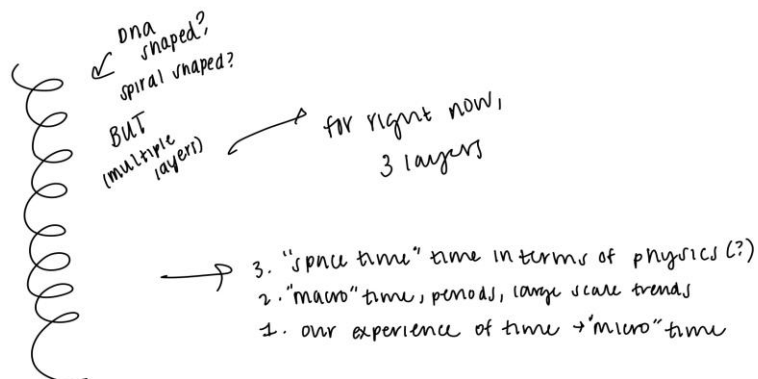 DNA
shaped?,
spiral shaped?
BUT
(multiple
layers)
for right now,
3 layers
3. "space time" time in terms of physics (?)
2. "macro" time, periods, large scale trends
1. our experience of time → "micro" time